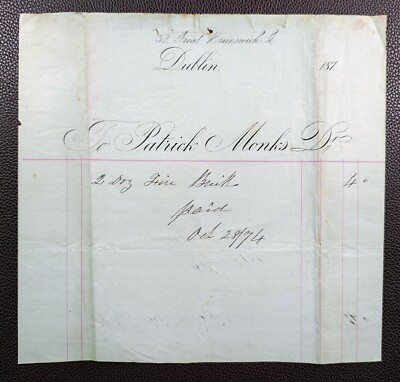 Great Brunswick St
Dublin, 187
To Patrick Monks Dr
2 Doz Fire Brick 4 "
paid
Oct 28/74